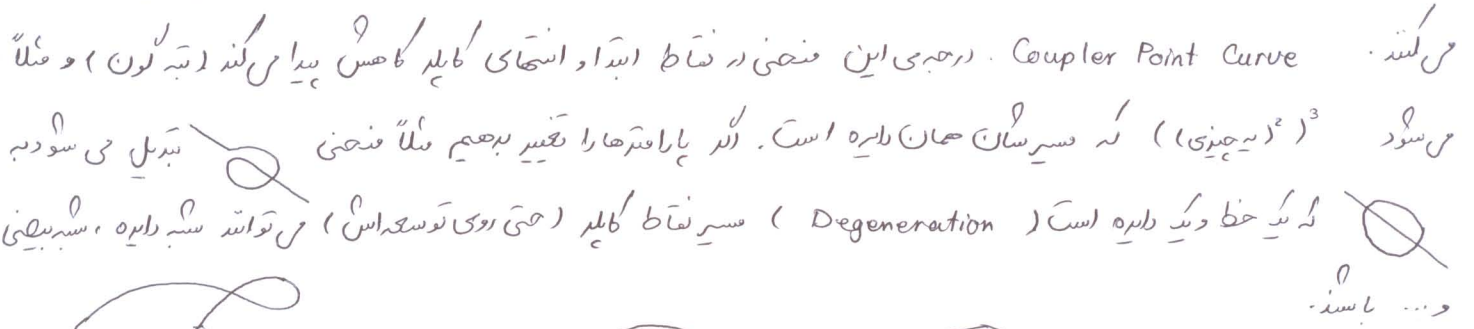 می کنند. Coupler Point Curve. درجه ی این منحنی در نقاط ابتدا و انتهای کاپلر کاهش پیدا می کند (تبه گون) و مثلاً
می شود ((یه چیزی)²)³ که مسیرشان همان دایره است. اگر پارامترها را تغییر بدهیم مثلاً منحنی تبدیل می شود به
که یک خط و یک دایره است (Degeneration) مسیر نقاط کاپلر (حتی روی توسعه اش) می تواند شبه دایره، شبه بیضی
و... باشند.